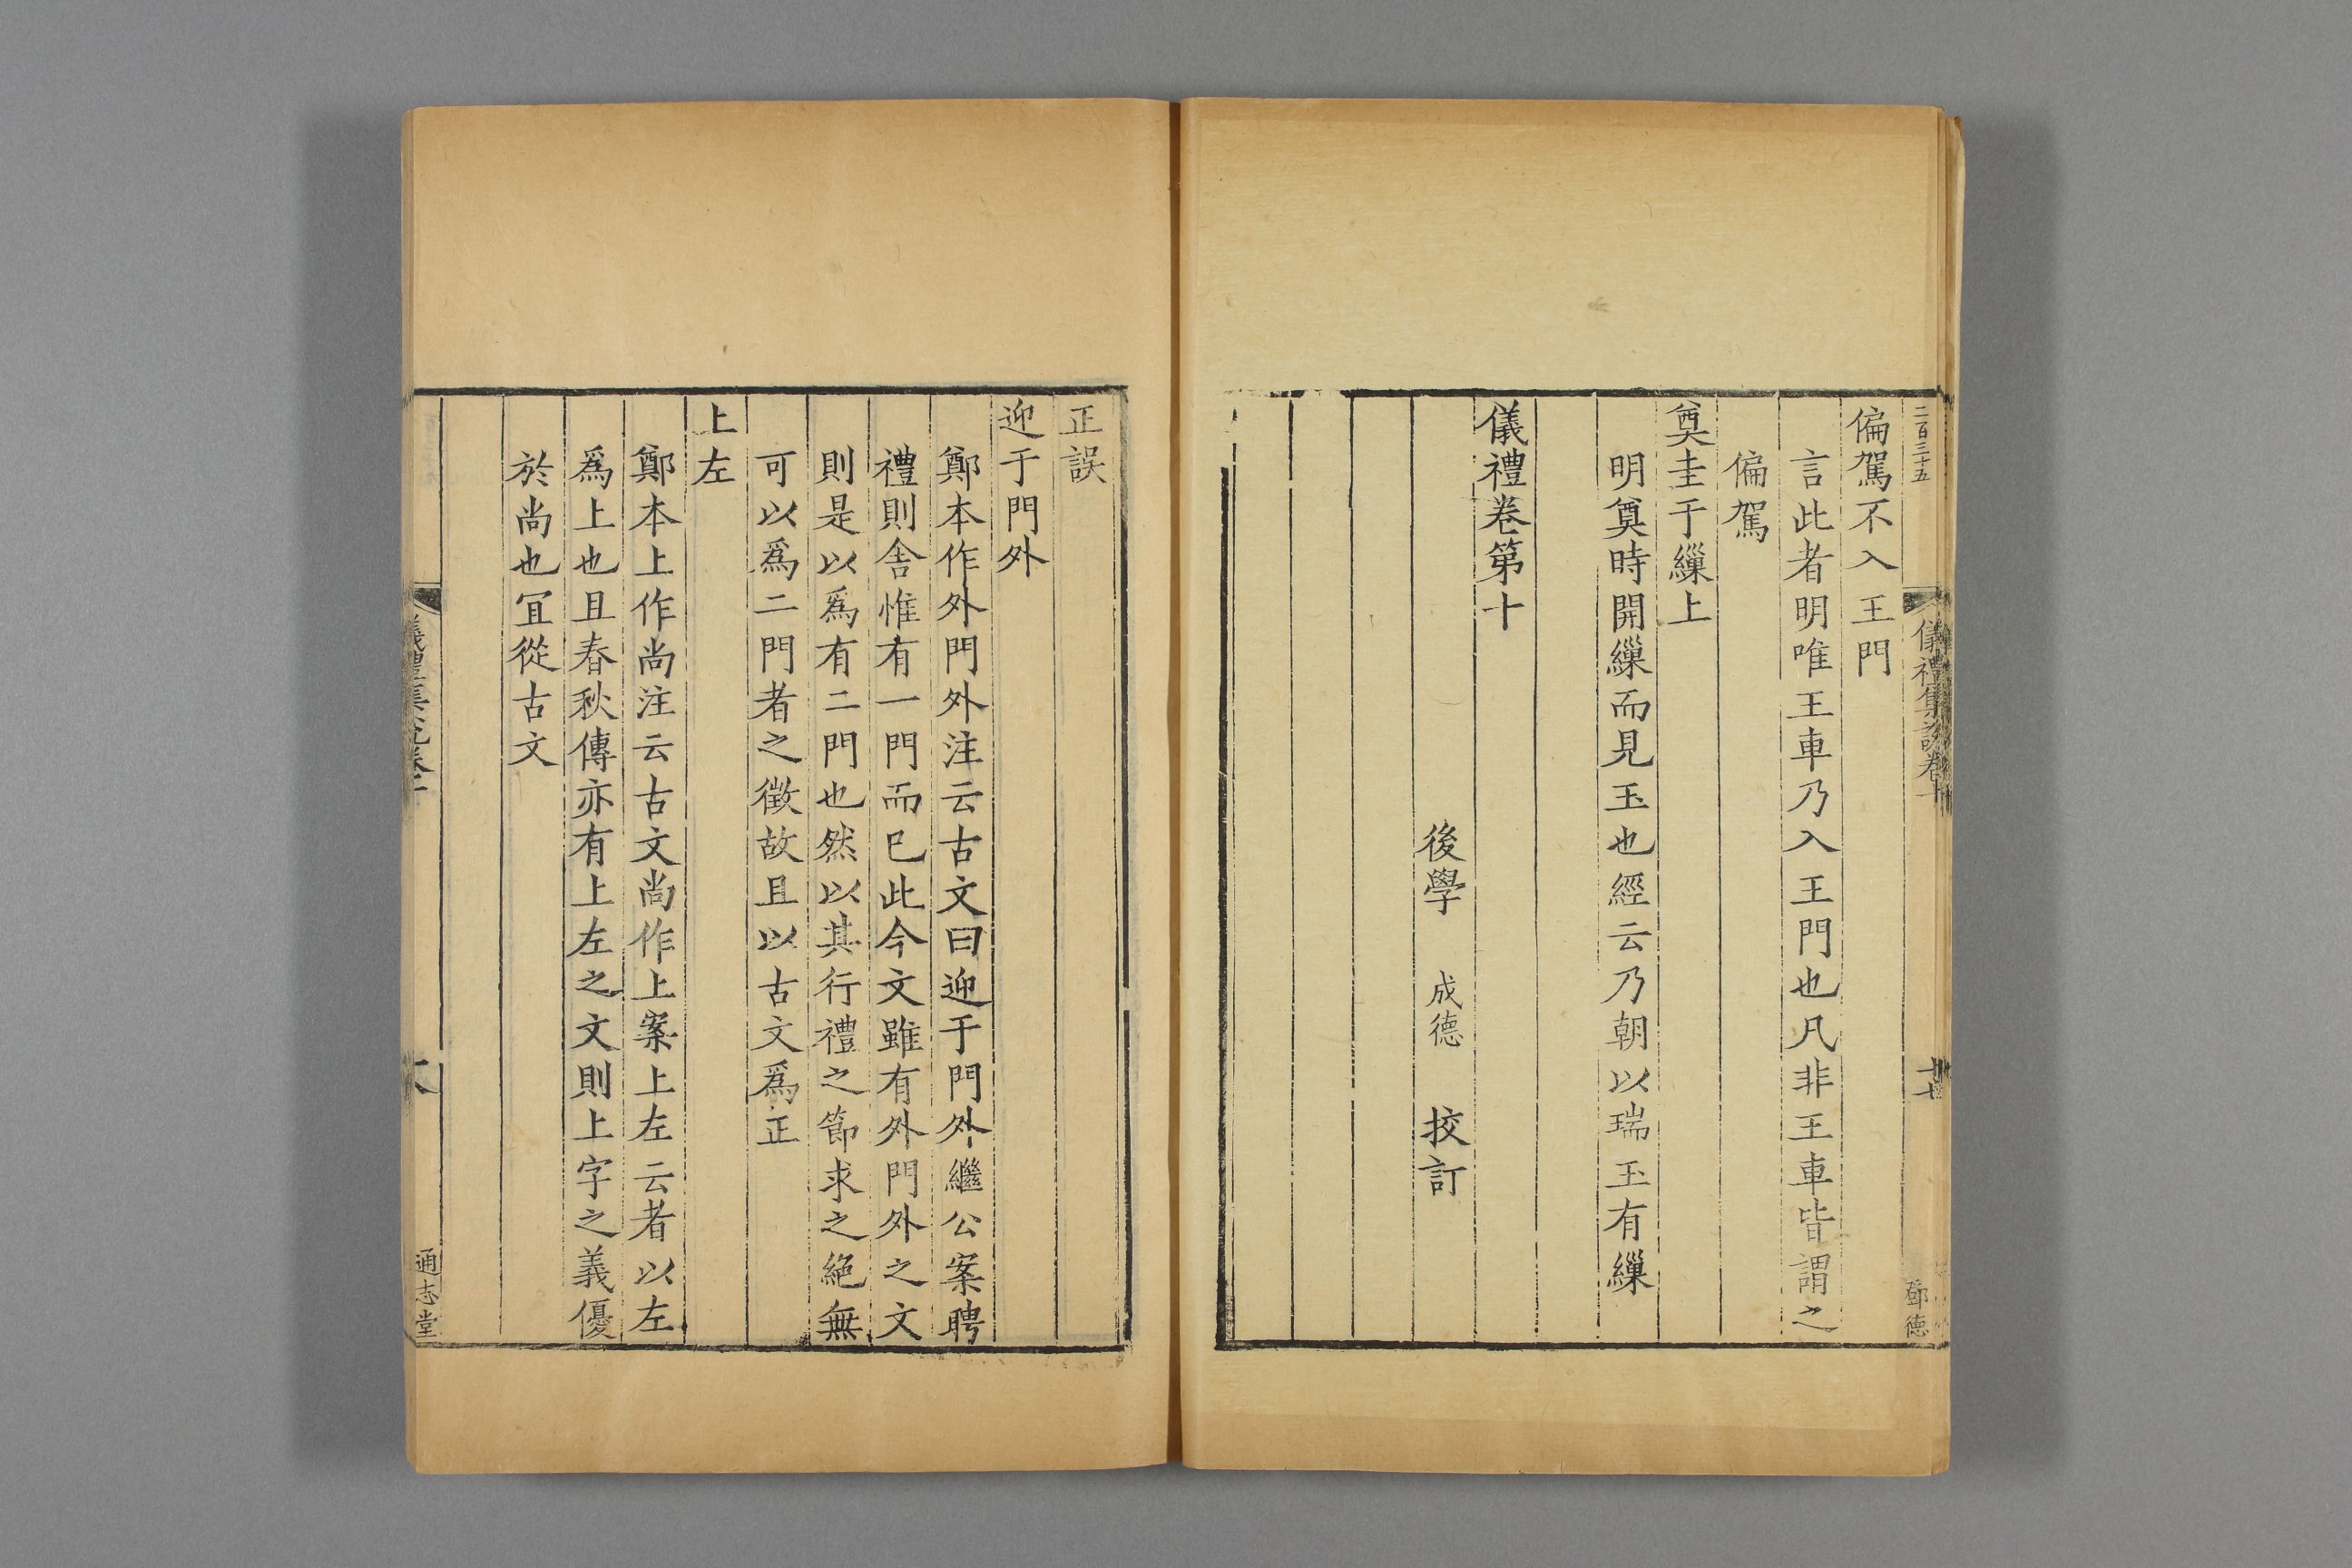 二百三十五
儀禮集説卷十
十七
鄧德
偏駕不入王門
言此者明唯王車乃入王門也凡非王車皆謂之
偏駕
奠圭于繅上
明奠時開繅而見玉也經云乃朝以瑞玉有繅
儀禮卷第十
後學 成德 挍訂
正誤
迎于門外
鄭本作外門外注云古文曰迎于門外繼公案聘
禮則舎惟有一門而已此今文雖有外門外之文
則是以爲有二門也然以其行禮之節求之絕無
可以爲二門者之徵故且以古文爲正
上左
鄭本上作尚注云古文尚作上案上左云者以左
爲上也且春秋傳亦有上左之文則上字之義優
於尚也冝從古文
通志堂